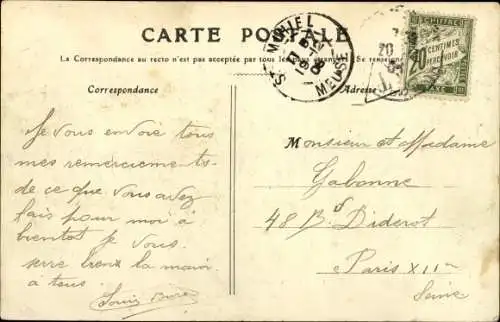 CARTE POSTALE
La Correspondance au recto n'est pas acceptée par tous les
Se renseigner
ST MIHIEL
MEUSE
CHIFFRE
20 CENTIMES
A PERCEVOIR
TAXE
Correspondance
Adresse
Je vous envoie tous
mes remerciements
de ce que vous avez
fais pour moi à
bientot je vous
serre bien la main
a tous.
Louis
Monsieur et Madame
Gabonne
48 Bd Diderot
Paris XII
Seine